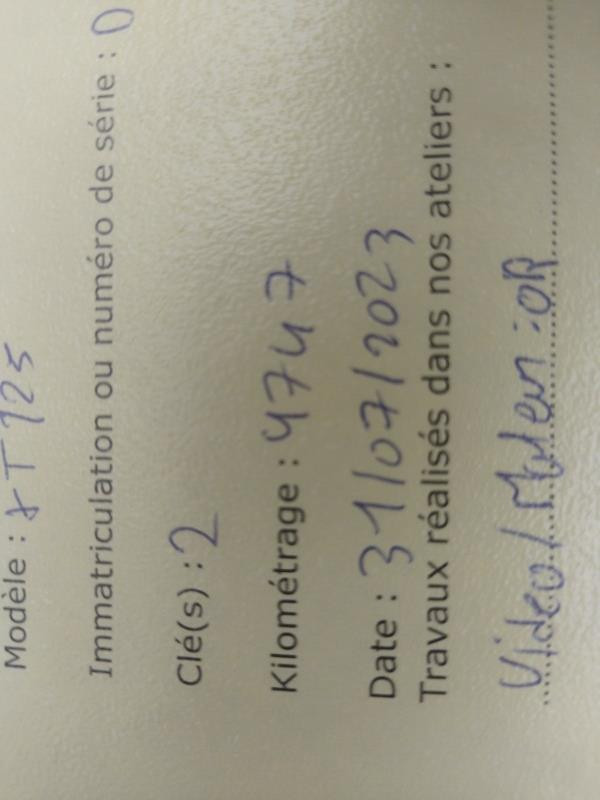 Modèle : XT125
Immatriculation ou numéro de série : D
Clé(s) : 2
Kilométrage : 4747
Date : 31/07/2023
Travaux réalisés dans nos ateliers :
Video/